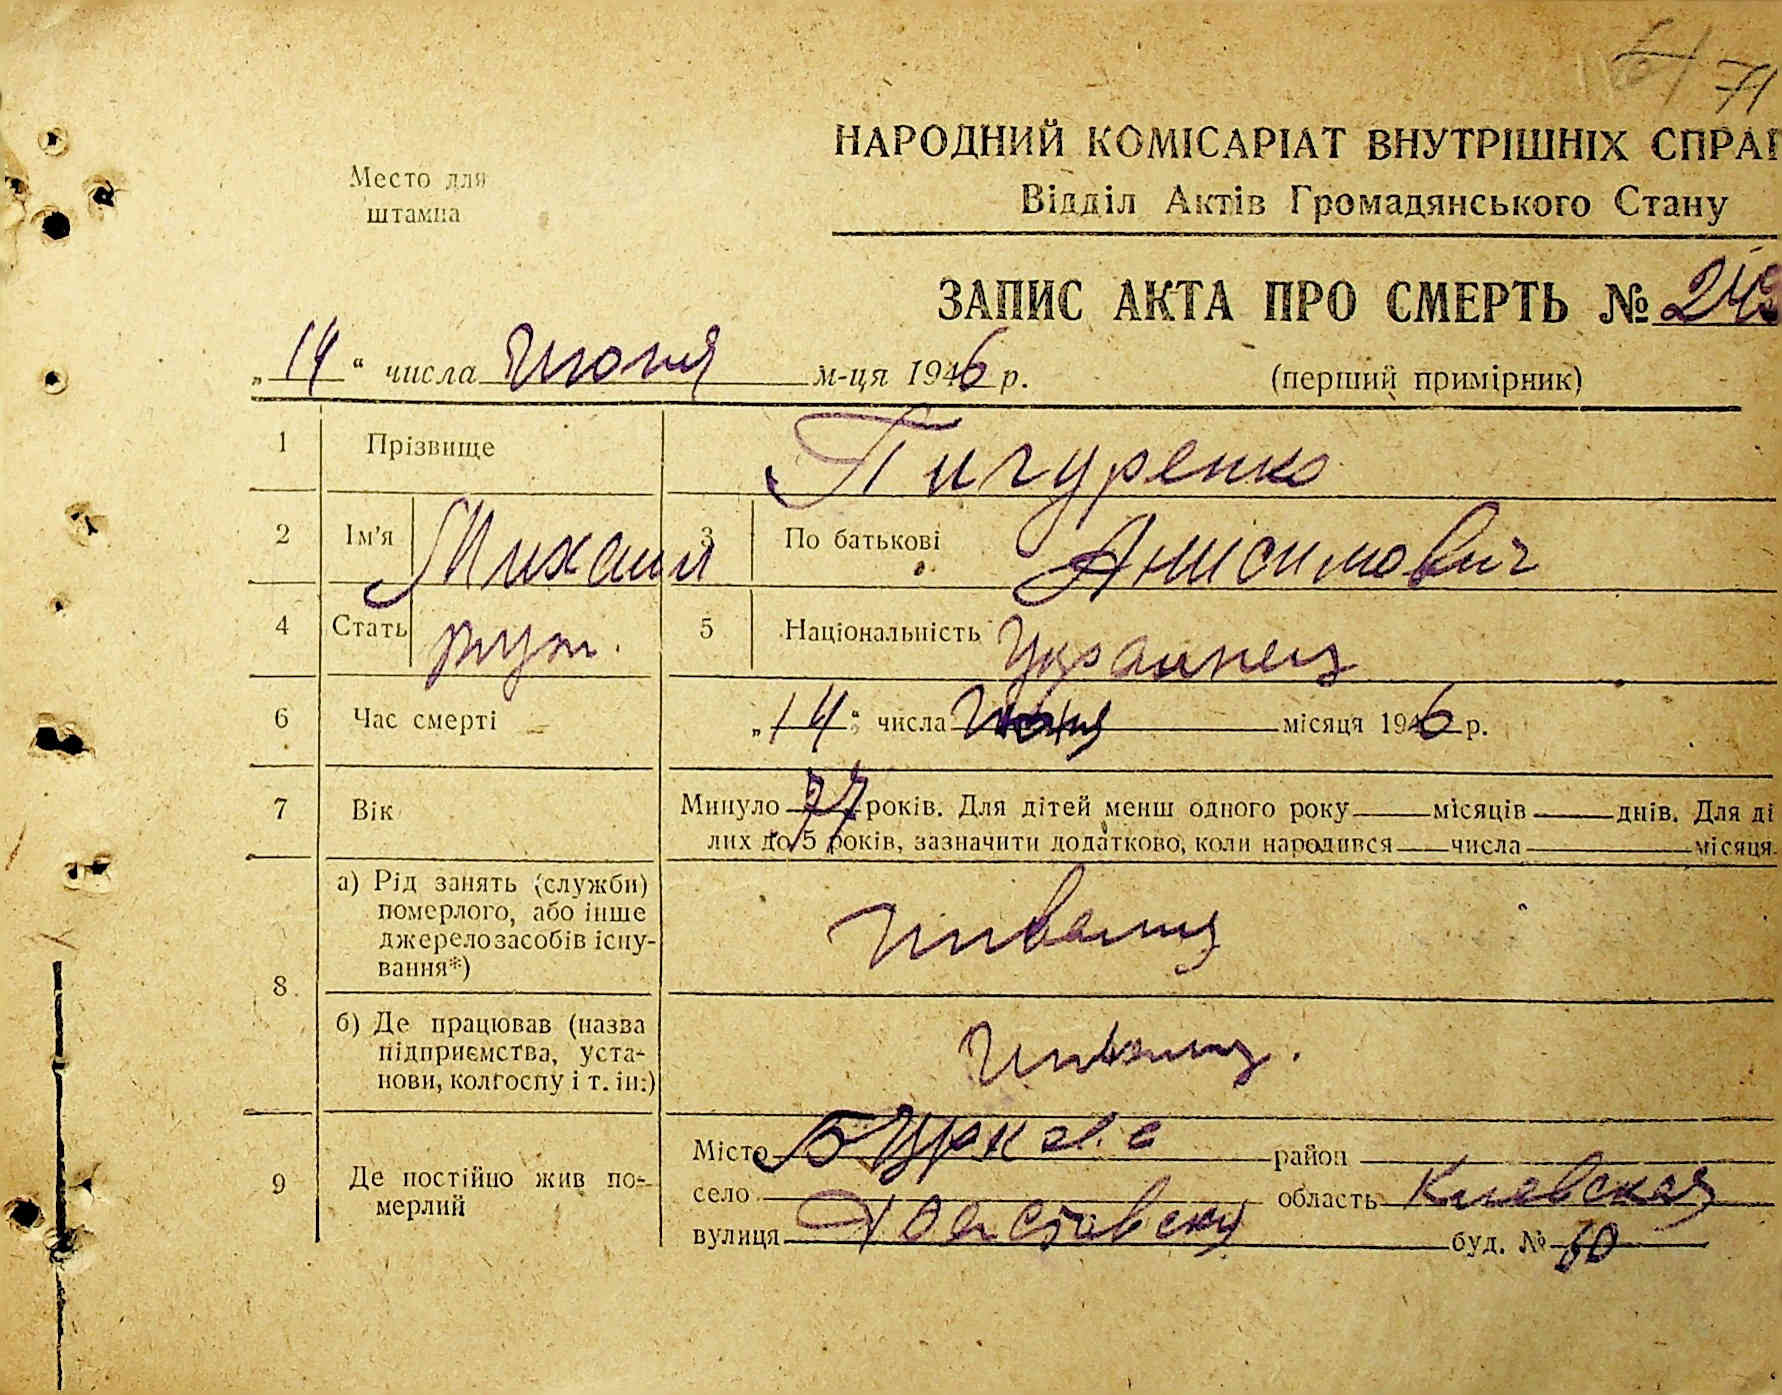 71
Место для
штампа
НАРОДНИЙ КОМІСАРІАТ ВНУТРІШНІХ СПРАВ
Відділ Актів Громадянського Стану
ЗАПИС АКТА ПРО СМЕРТЬ № 243
„14“ числа Июня м-ця 1946 р. (перший примірник)
1 Прізвище Пигуренко
2 Ім'я Михаил 3 По батькові Анисимович
4 Стать муж. 5 Національність Украинец
6 Час смерті „14“ числа Июня місяця 1946 р.
7 Вік Минуло 77 років. Для дітей менш одного року місяців днів. Для ді
лих до 5 років, зазначити додатково, коли народився числа місяця
8 а) Рід занять (служби)
померлого, або інше
джерело засобів існу-
вання*) Инвалид
б) Де працював (назва
підприємства, уста-
нови, колгоспу і т. ін.) Инвалид.
9 Де постійно жив по-
мерлий
Місто район
село область Киевская
вулиця буд. № 60